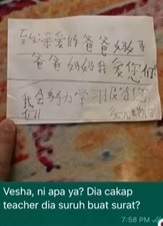 至亲爱的爸爸妈妈
爸爸妈妈我爱您们
我会努力学习
Vesha, ni apa ya? Dia cakap
teacher dia suruh buat surat?
7:58 PM